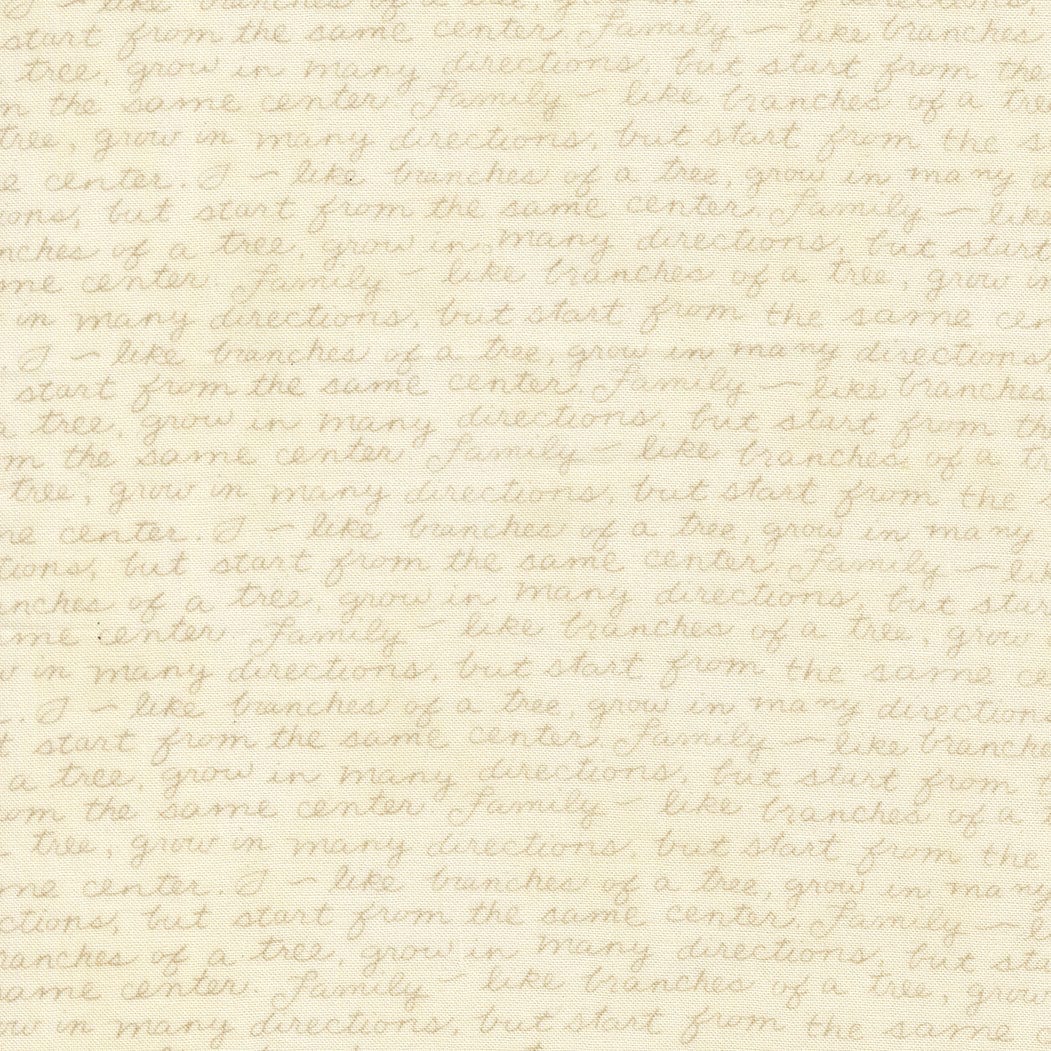 like branches of a tree, grow in many directions,
start from the same center. Family — like branches
tree, grow in many directions, but start from the
the same center. Family — like branches of a tree
tree, grow in many directions, but start from the s
e center. J — like branches of a tree, grow in many d
ions, but start from the same center. Family — like
nches of a tree, grow in many directions, but start
me center. Family — like branches of a tree, grow in
in many directions, but start from the same cen
. J — like branches of a tree, grow in many directions,
start from the same center. Family — like branches
a tree, grow in many directions, but start from th
m the same center Family — like branches of a tr
tree, grow in many directions, but start from the s
ne center. J — like branches of a tree, grow in many
tions, but start from the same center. Family — lik
anches of a tree, grow in many directions, but star
ame center. Family — like branches of a tree, grow
w in many directions, but start from the same ce
. J — like branches of a tree, grow in many directions
t start from the same center. Family — like branche
a tree, grow in many directions, but start from t
om the same center Family — like branches of a t
tree, grow in many directions, but start from the
me center. J — like branches of a tree, grow in many
ctions, but start from the same center. Family — l
ranches of a tree, grow in many directions, but sta
same center. Family — like branches of a tree, grow
ow in many directions, but start from the same c